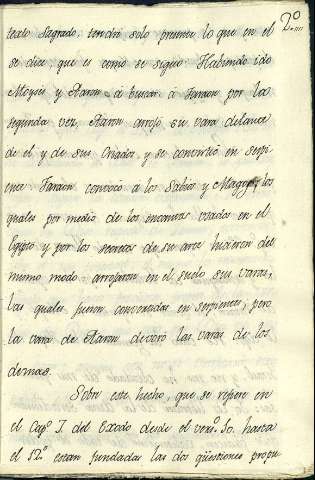 2º
texto Sagrado; tendré solo presente lo que en el
se dice, que es como se sigue. Habiendo ido
Moyses y Aaron a buscar a Faraon por la
segunda vez, Aaron arrojó su vara delante
de el y de sus Criados, y se convirtió en serpi
ente. Faraon convocó a los Sabios y Magos, los
quales por medio de los encantos usados en el
Egipto y por los secretos de su arte hicieron del
mismo modo: arrojaron en el suelo sus varas,
las quales fueron convertidas en serpientes; pero
la vara de Aaron devoró las varas de los
demas.
Sobre este hecho, que se refiere en
el Capº. I. del Exodo desde el versº. 10. hasta
el 12º. estan fundadas las dos qüestiones propu